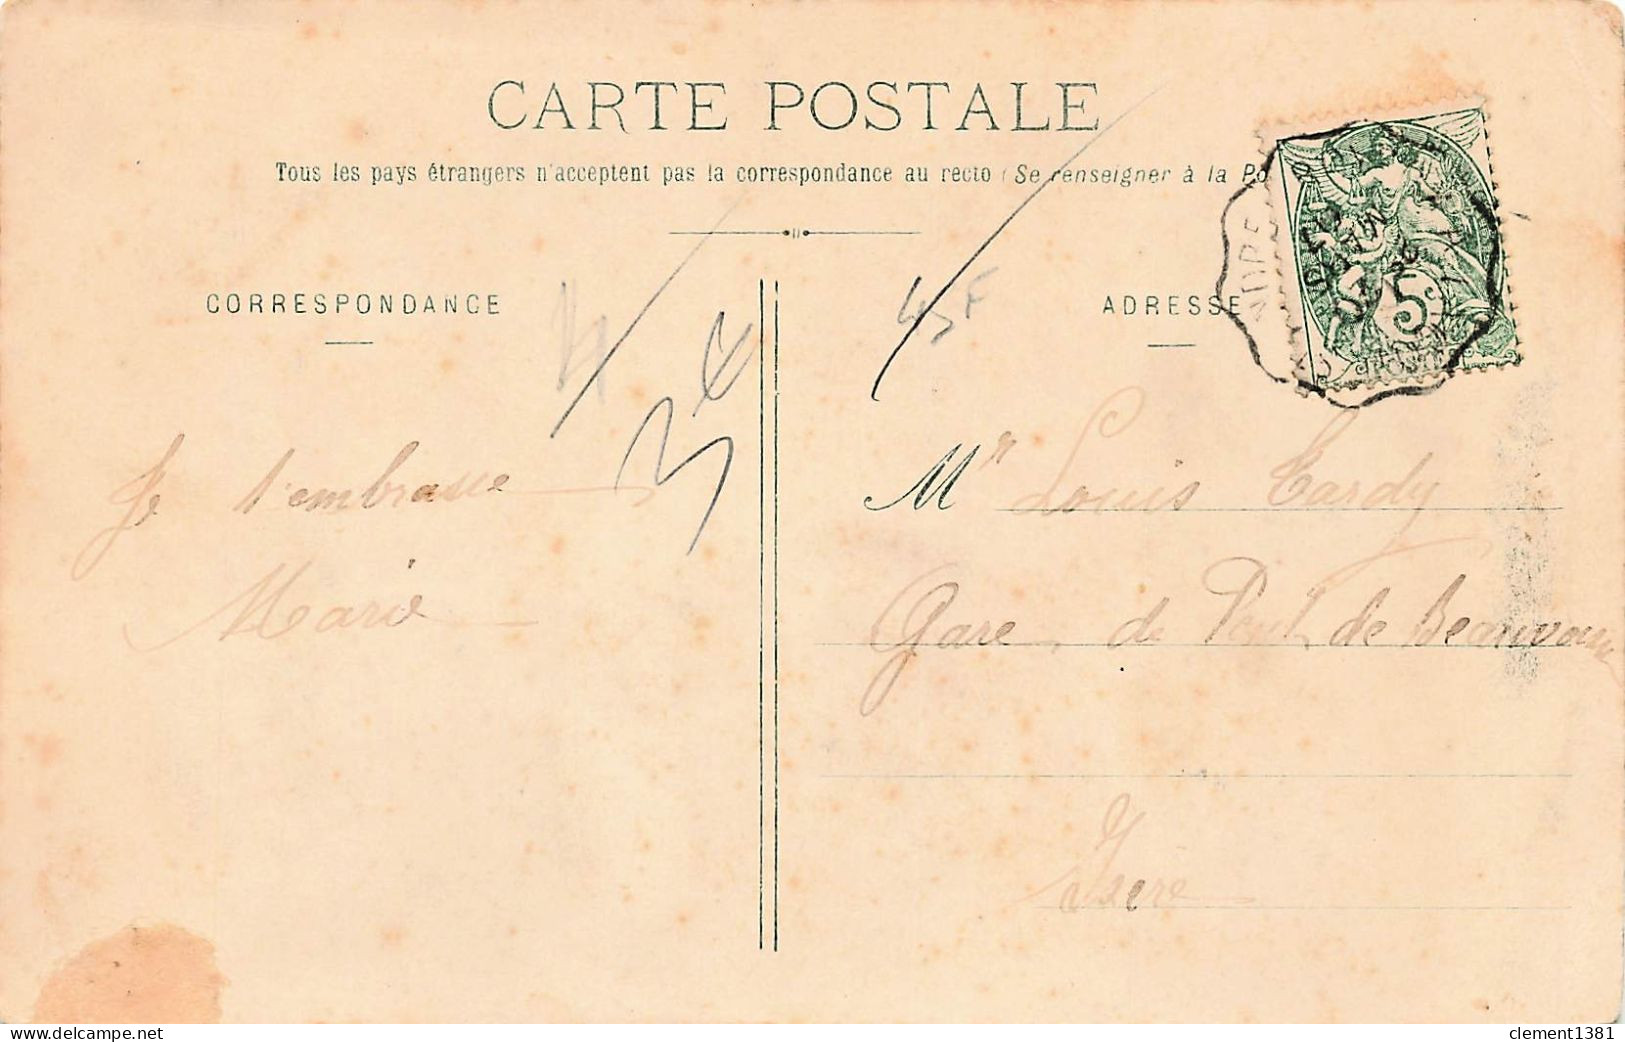 CARTE POSTALE
Tous les pays étrangers n'acceptent pas la correspondance au recto (Se renseigner à la Po
CORRESPONDANCE
ADRESSE
45F
3€
5
Je t'embrasse
Marie
Mr Louis Tardy
Gare de Pont de Beauvoisin
Isère
delcampe.net
clement1381